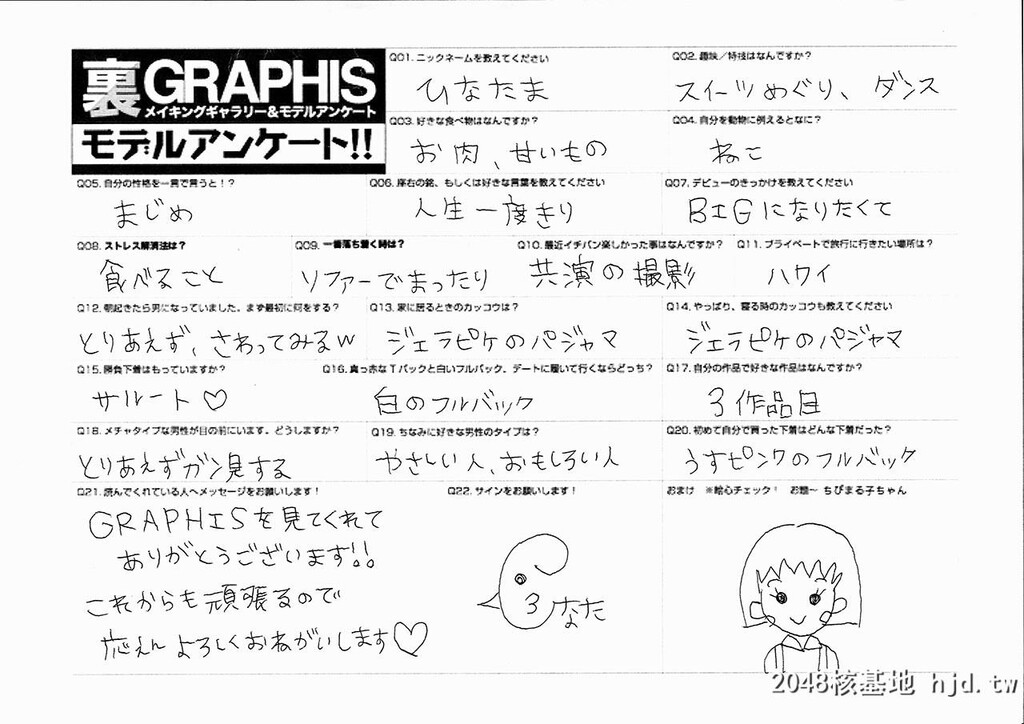 裏GRAPHIS
メイキングギャラリー&モデルアンケート
モデルアンケート!!
Q01. ニックネームを教えてください
ひなたま
Q02. 趣味／特技はなんですか？
スイーツめぐり、ダンス
Q03. 好きな食べ物はなんですか？
お肉、甘いもの
Q04. 自分を動物に例えるとなに？
ねこ
Q05. 自分の性格を一言で言うと！？
まじめ
Q06. 座右の銘、もしくは好きな言葉を教えてください
人生一度きり
Q07. デビューのきっかけを教えてください
BIGになりたくて
Q08. ストレス解消法は？
食べること
Q09. 一番落ち着く時は？
ソファーでまったり
Q10. 最近イチバン楽しかった事はなんですか？
共演の撮影
Q11. プライベートで旅行に行きたい場所は？
ハワイ
Q12. 朝起きたら男になっていました。まず最初に何をする？
とりあえず、さわってみるw
Q13. 家に居るときのカッコウは？
ジェラピケのパジャマ
Q14. やっぱり、寝る時のカッコウも教えてください
ジェラピケのパジャマ
Q15. 勝負下着はもっていますか？
サルート♡
Q16. 真っ赤なTバックと白いフルバック、デートに履いて行くならどっち？
白のフルバック
Q17. 自分の作品で好きな作品はなんですか？
3作品目
Q18. メチャタイプな男性が目の前にいます。どうしますか？
とりあえずガン見する
Q19. ちなみに好きな男性のタイプは？
やさしい人、おもしろい人
Q20. 初めて自分で買った下着はどんな下着だった？
うすピンクのフルバック
Q21. 読んでくれている人へメッセージをお願いします！
GRAPHISを見てくれて
ありがとうございます!!
これからも頑張るので
応えんよろしくおねがいします♡
Q22. サインをお願いします！
ろなた
おまけ ※絵心チェック！ お題～ちびまる子ちゃん
2048核基地 hjd.tw